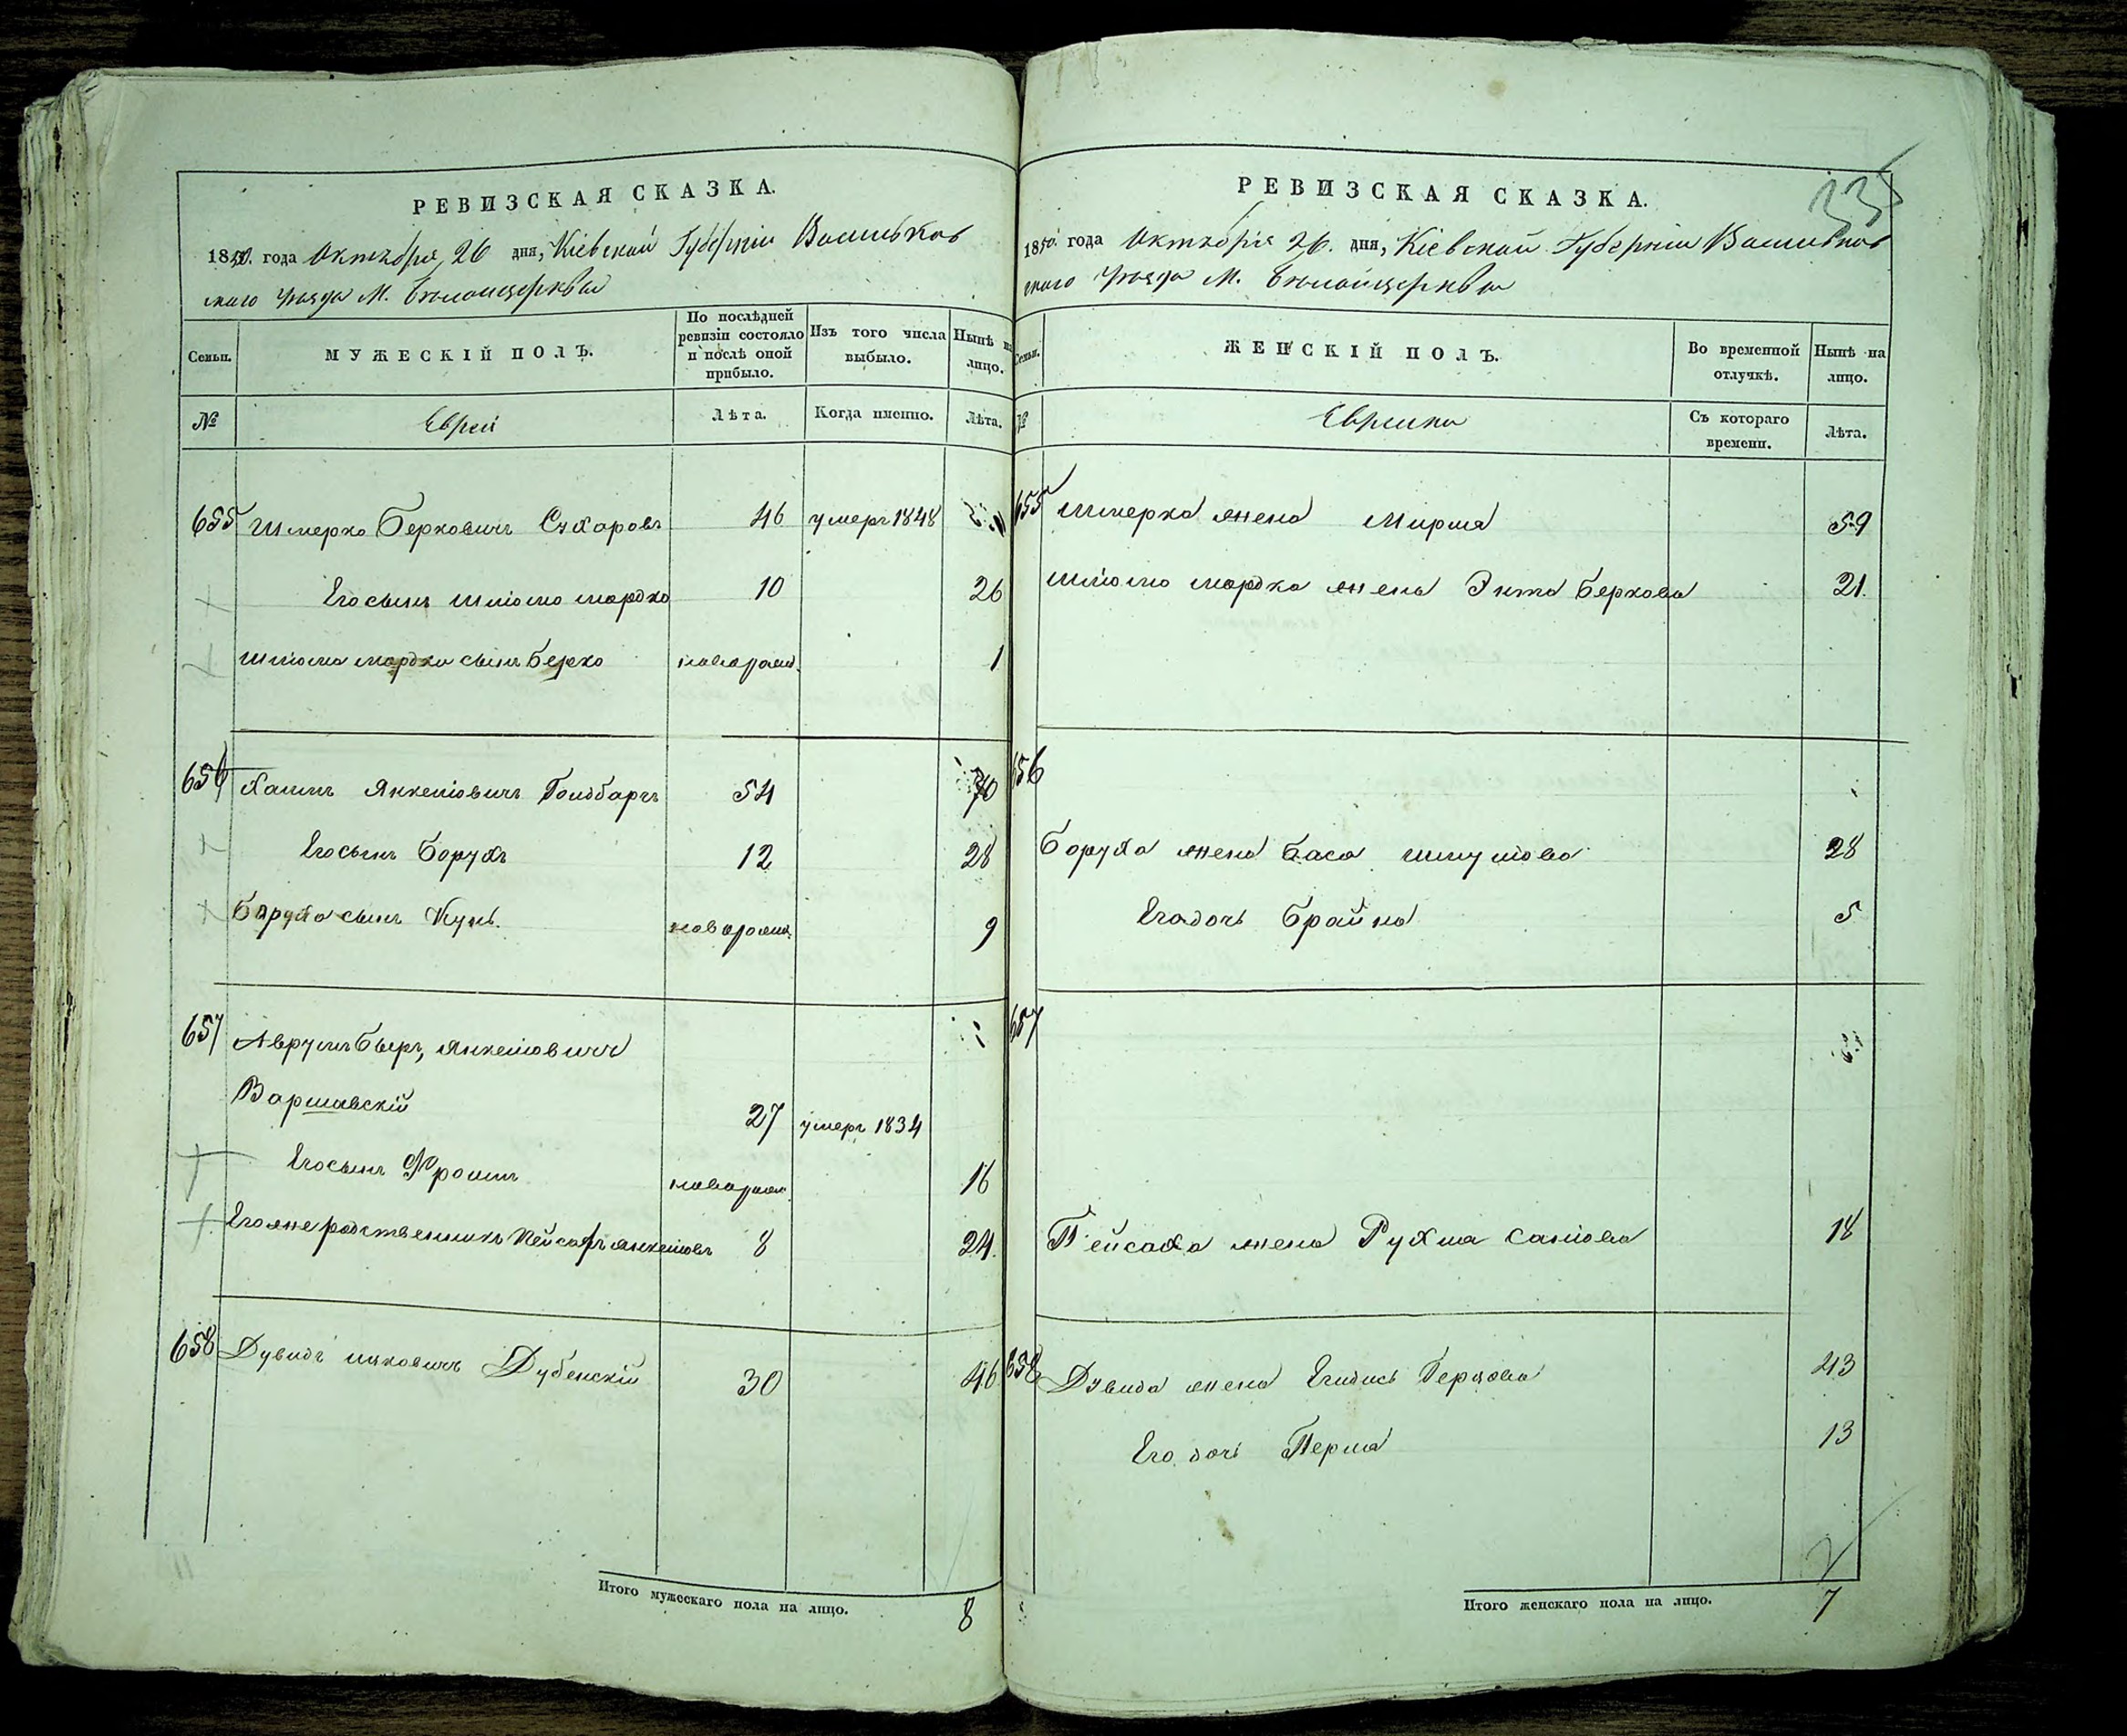 РЕВИЗСКАЯ СКАЗКА.
1850. года Октября 26 дня, Кіевской Губерніи Васильков
скаго уѣзда М. Бѣлойцеркви
Семьи.
МУЖЕСКІЙ ПОЛЪ.
По послѣдней ревизіи состояло и послѣ оной прибыло.
Изъ того числа выбыло.
Нынѣ на лицо.
№
Евреи
Лѣта.
Когда именно.
Лѣта.
655 Шмерко Берковичъ Сухаровъ 46 умеръ 1848
Его сынъ Шліома Мордко 10 26
Шліома Мордки сынъ Берко новорожд. 1
656 Хаимъ Янкеліовичъ Голдбаргъ 54 70
Его сынъ Борухъ 12 28
Боруха сынъ Кунъ новорожд. 9
657 Аврумъ Беръ, Янкеліовичъ
Варшавскій 27 умеръ 1834
Его сынъ Фроимъ новорожд. 16
Его же родственникъ Пейсахъ Янкеліовъ 8 24.
658 Дувидъ Ицковичъ Дубенскій 30 46
Итого мужескаго пола на лицо. 8
РЕВИЗСКАЯ СКАЗКА.
335
1850. года Октября 26. дня, Кіевской Губерніи Васильков
скаго уѣзда М. Бѣлойцеркви
Семьи.
ЖЕНСКІЙ ПОЛЪ.
Во временной отлучкѣ.
Нынѣ на лицо.
№
Еврейки
Съ котораго времени.
Лѣта.
655 Шмерка жена Мирля 59
Шліома Мордка жена Энта Беркова 21.
656
Боруха жена Бася Шмулова 28
Его дочь Брайна 5
657
Пейсаха жена Рухля Саніова 18
658 Дувида жена Герцова 43
Его дочь Перля 13
Итого женскаго пола на лицо. 7